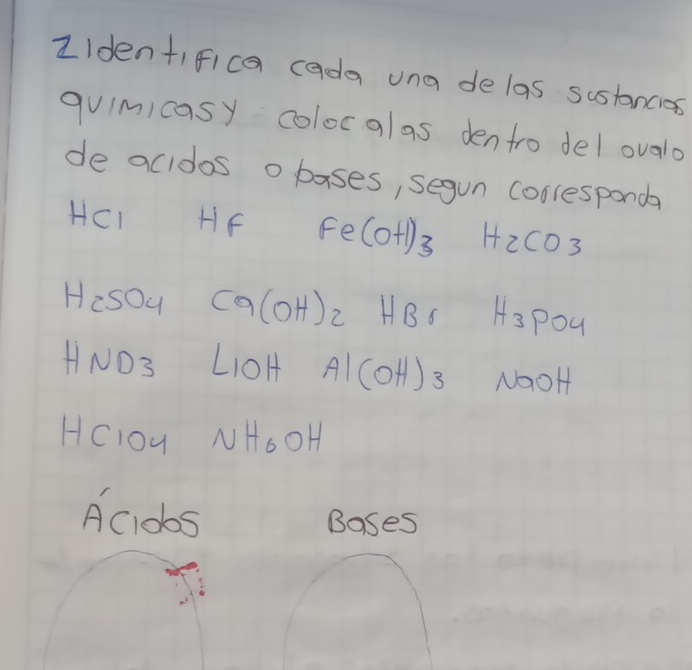 2 Identifica cada una de las sustancias
quimicas y colocalas dentro del ovalo
de acidos o bases, segun corresponda
HCl HF Fe(OH)3 H2CO3
H2SO4 Ca(OH)2 HBr H3PO4
HNO3 LiOH Al(OH)3 NaOH
HClO4 NH6OH
Ácidos Bases